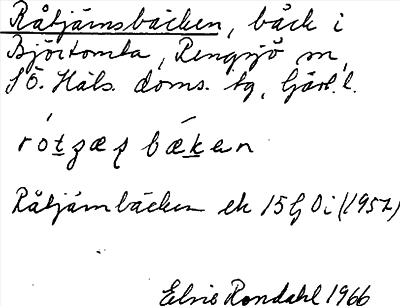 Råtjärnsbäcken, bäck i
Björtomta, Rengsjö sn,
SÖ. Häls. doms. tg, Gävl. l.
rótʒæʂ bæken
Råtjärnbäcken ek 15G 0i (1957)
Elvis Rondahl 1966